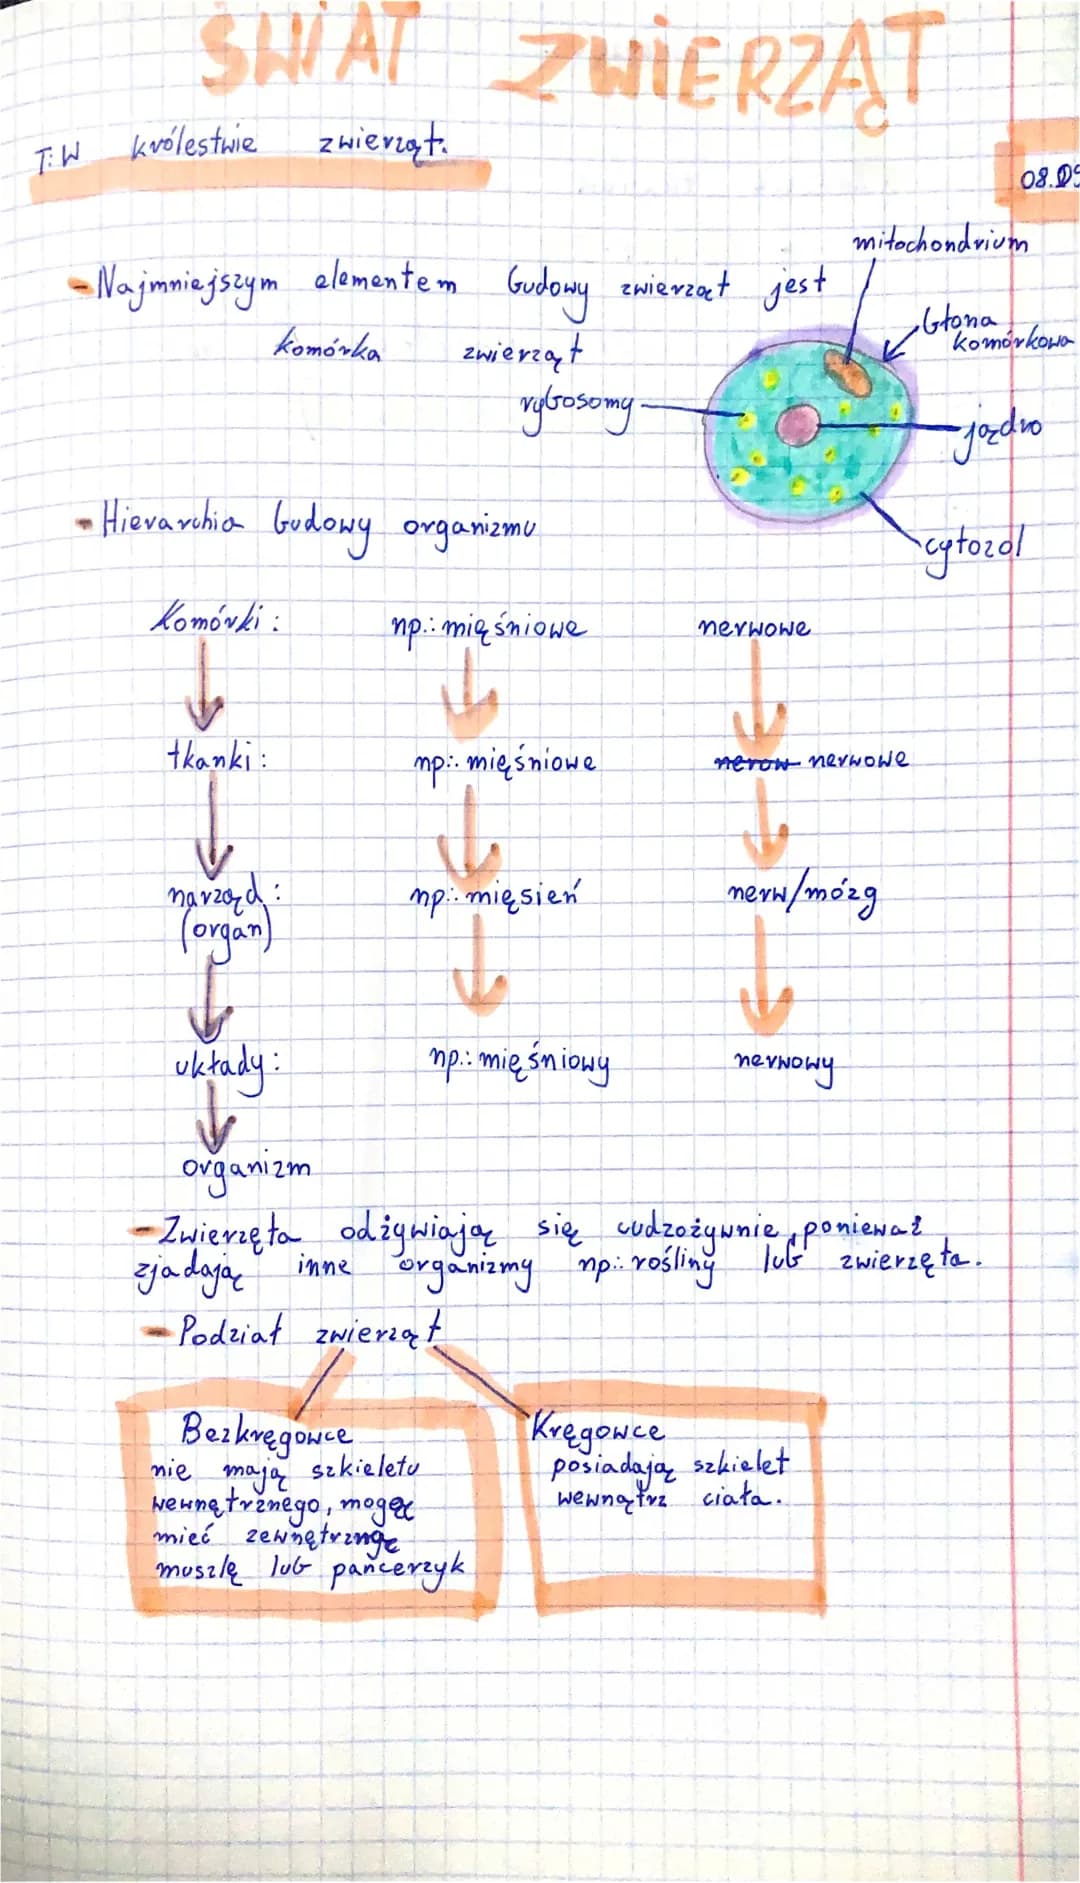 ŚWIAT ZWIERZĄT
T: W królestwie zwierząt.
08.09
mitochondrium
- Najmniejszym elementem budowy zwierząt jest
błona
komórkowa
komórka zwierząt
rybosomy
jądro
- Hierarchia budowy organizmu
cytozol
Komórki: np.: mięśniowe nerwowe
tkanki: np.: mięśniowe nerow nerwowe
narząd: np.: mięsień nerw/mózg
(organ)
układy: np.: mięśniowy nerwowy
organizm
- Zwierzęta odżywiają się cudzożywnie, ponieważ
zjadają inne organizmy np.: rośliny lub zwierzęta.
- Podział zwierząt
Bezkręgowce
nie mają szkieletu
wewnętrznego, mogą
mieć zewnętrzngę
muszlę lub pancerzyk
Kręgowce
posiadają szkielet
wewnątrz ciała.